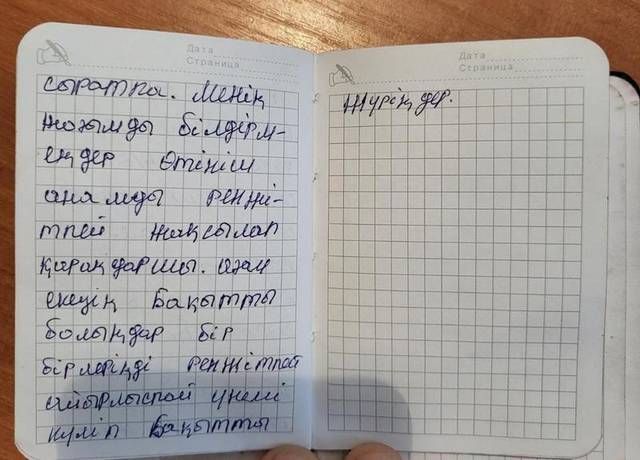 Дата
Страница
сыратпа. Менің
жоғымды білдірм-
еңдер Өтініш
анамды ренжі-
тпей жақсылап
қараңдаршы. Әкем
екеуің Бақытты
болыңдар бір
біріңді ренжітпей
айырлыспай үнемі
күліп Бақытты
Дата
Страница
жүріңдер.